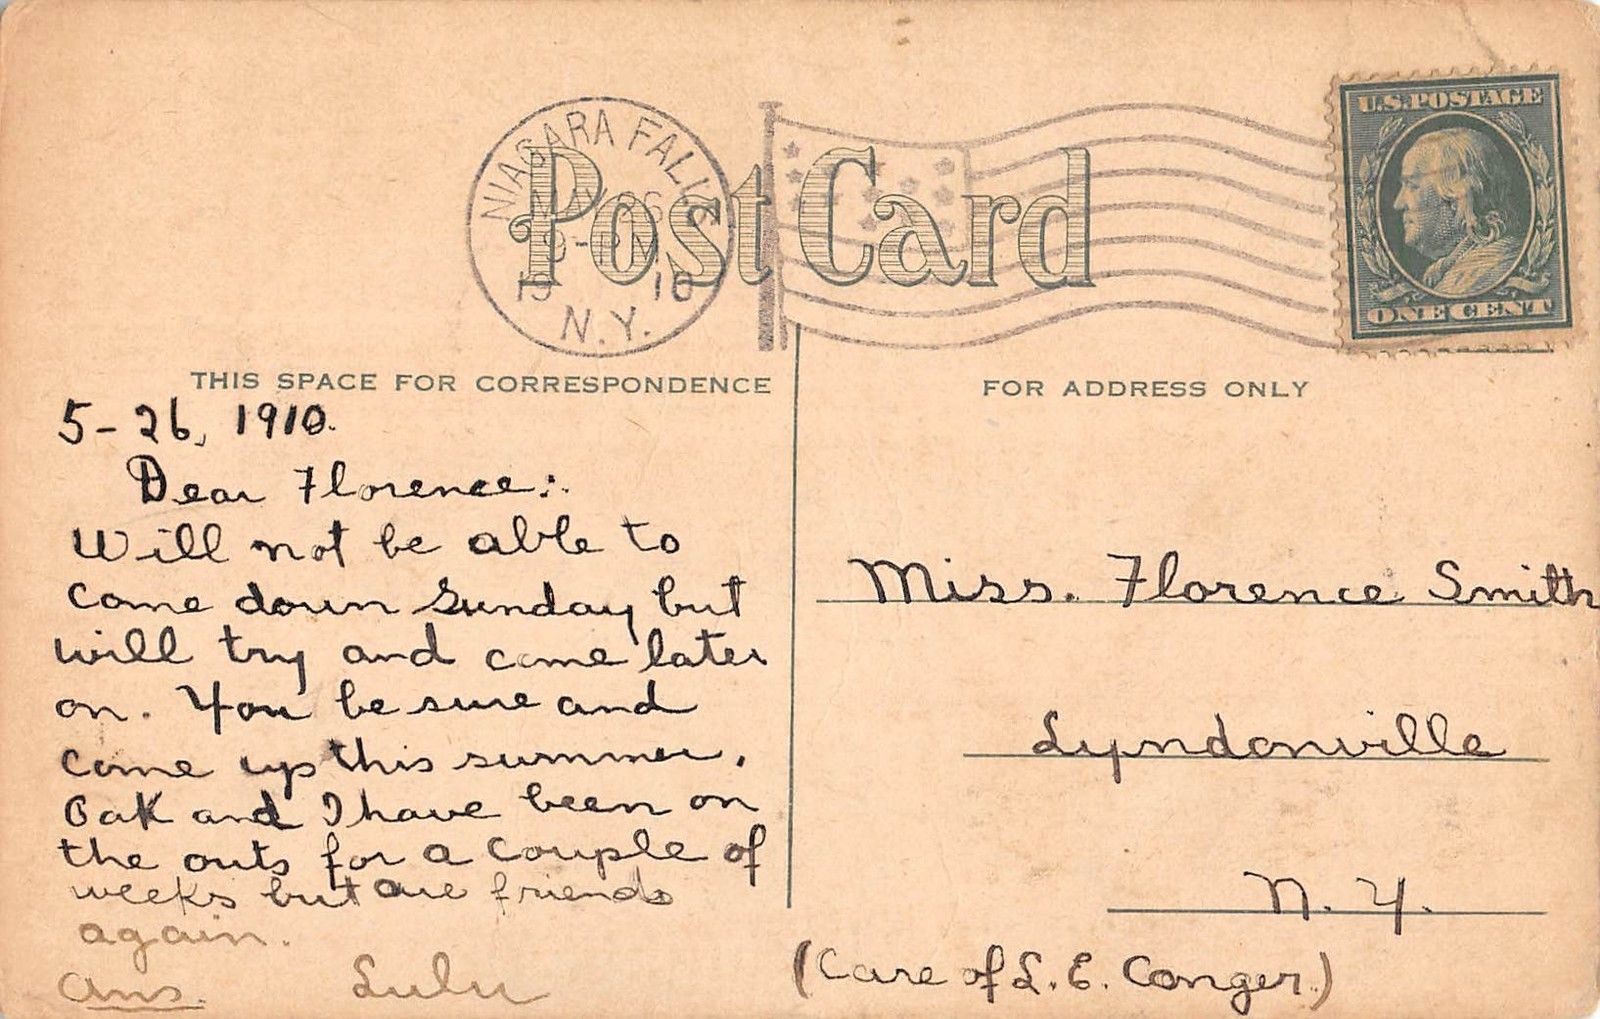 U.S. POSTAGE
ONE CENT
NIAGARA FALLS
MAY 26
9-PM
1910
N.Y.
Post Card
THIS SPACE FOR CORRESPONDENCE
5-26, 1910.
Dear Florence:.
Will not be able to
come down Sunday but
will try and come later
on. You be sure and
come up this summer.
Oak and I have been on
the outs for a couple of
weeks but are friends
again.
Ans. Lulu
FOR ADDRESS ONLY
Miss. Florence Smith
Lyndonville
N. Y.
(Care of L. E. Conger.)